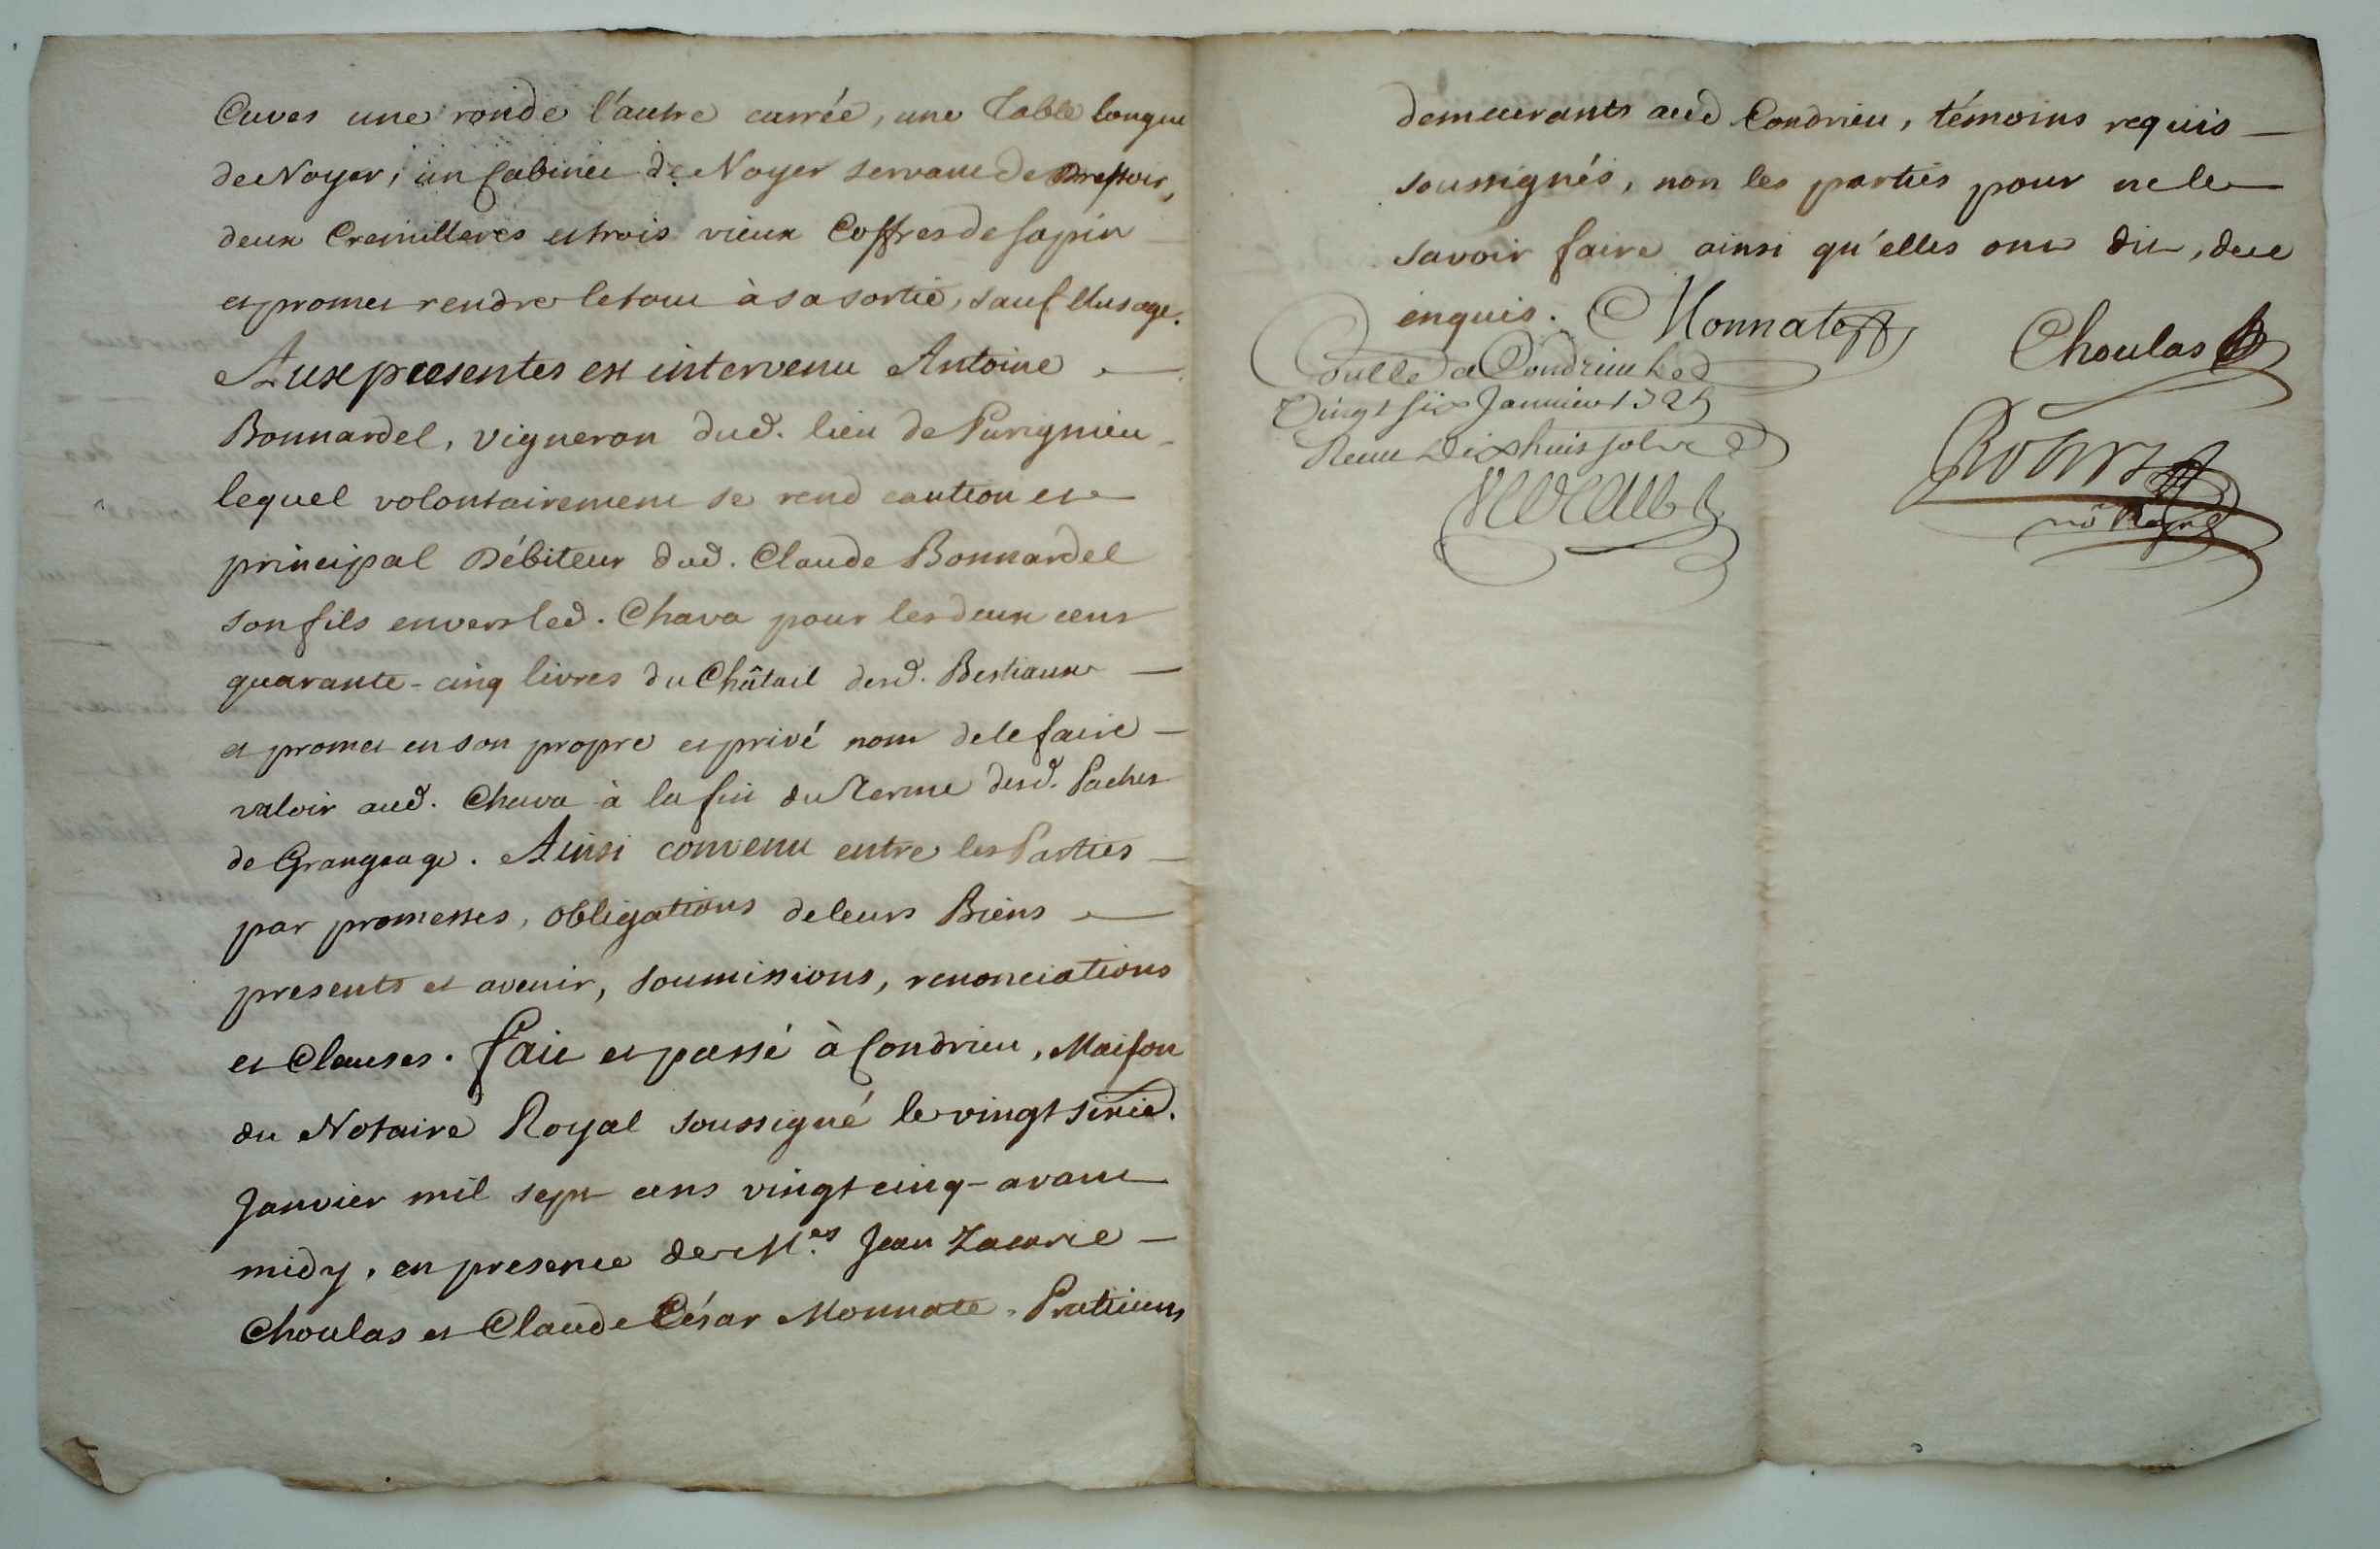 Cuves une ronde l'autre carrée, une Table longue
de Noyer, un Cabinet de Noyer servant de Dressoir,
deux Cremilleres et trois vieux Coffres de sapin
et promet rendre le tout à sa sortie, sauf l'usage.
Aux presentes est intervenu Antoine
Bonnardel, vigneron dud. lieu de
lequel volontairement se rend caution et
principal Débiteur dud. Claude Bonnardel
son fils envers led. Chava pour les deux cens
quarante-cinq livres du Châtail desd. Bestiaux
et promet en son propre et privé nom de le faire
valoir aud. Chava à la fin du Terme desd. Paches
de Grangeage. Ainsi convenu entre les Parties
par promesses, obligations de leurs Biens
presents et avenir, soumissions, renonciations
et Clauses. fait et passé à Condrieu, Maison
du Notaire Royal soussigné le vingt sixie.
Janvier mil sept cens vingt cinq avant
midy, en presence de Mes. Jean Zacarie
Choulas et Claude César Monnate, Praticiens
demeurants aud Condrieu, témoins requis
soussignés, non les parties pour ne le
savoir faire ainsi qu'elles ont dit, de ce
enquis. Monnate
Choulas
à Condrieu le
Vingt six Janvier 1725
Receu Dix huit sols
no Royal